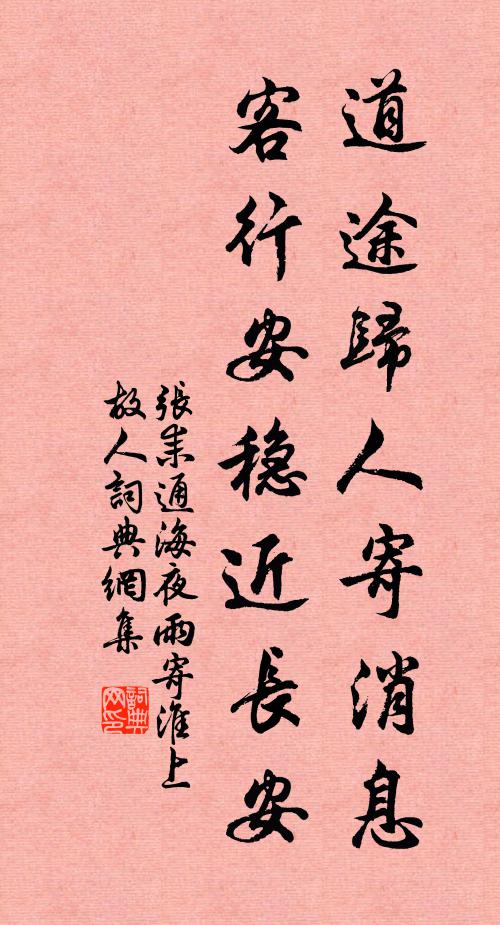 道途歸人寄消息
客行安穩近長安
張耒通海夜雨寄淮上
故人詞典網集
詞典网印